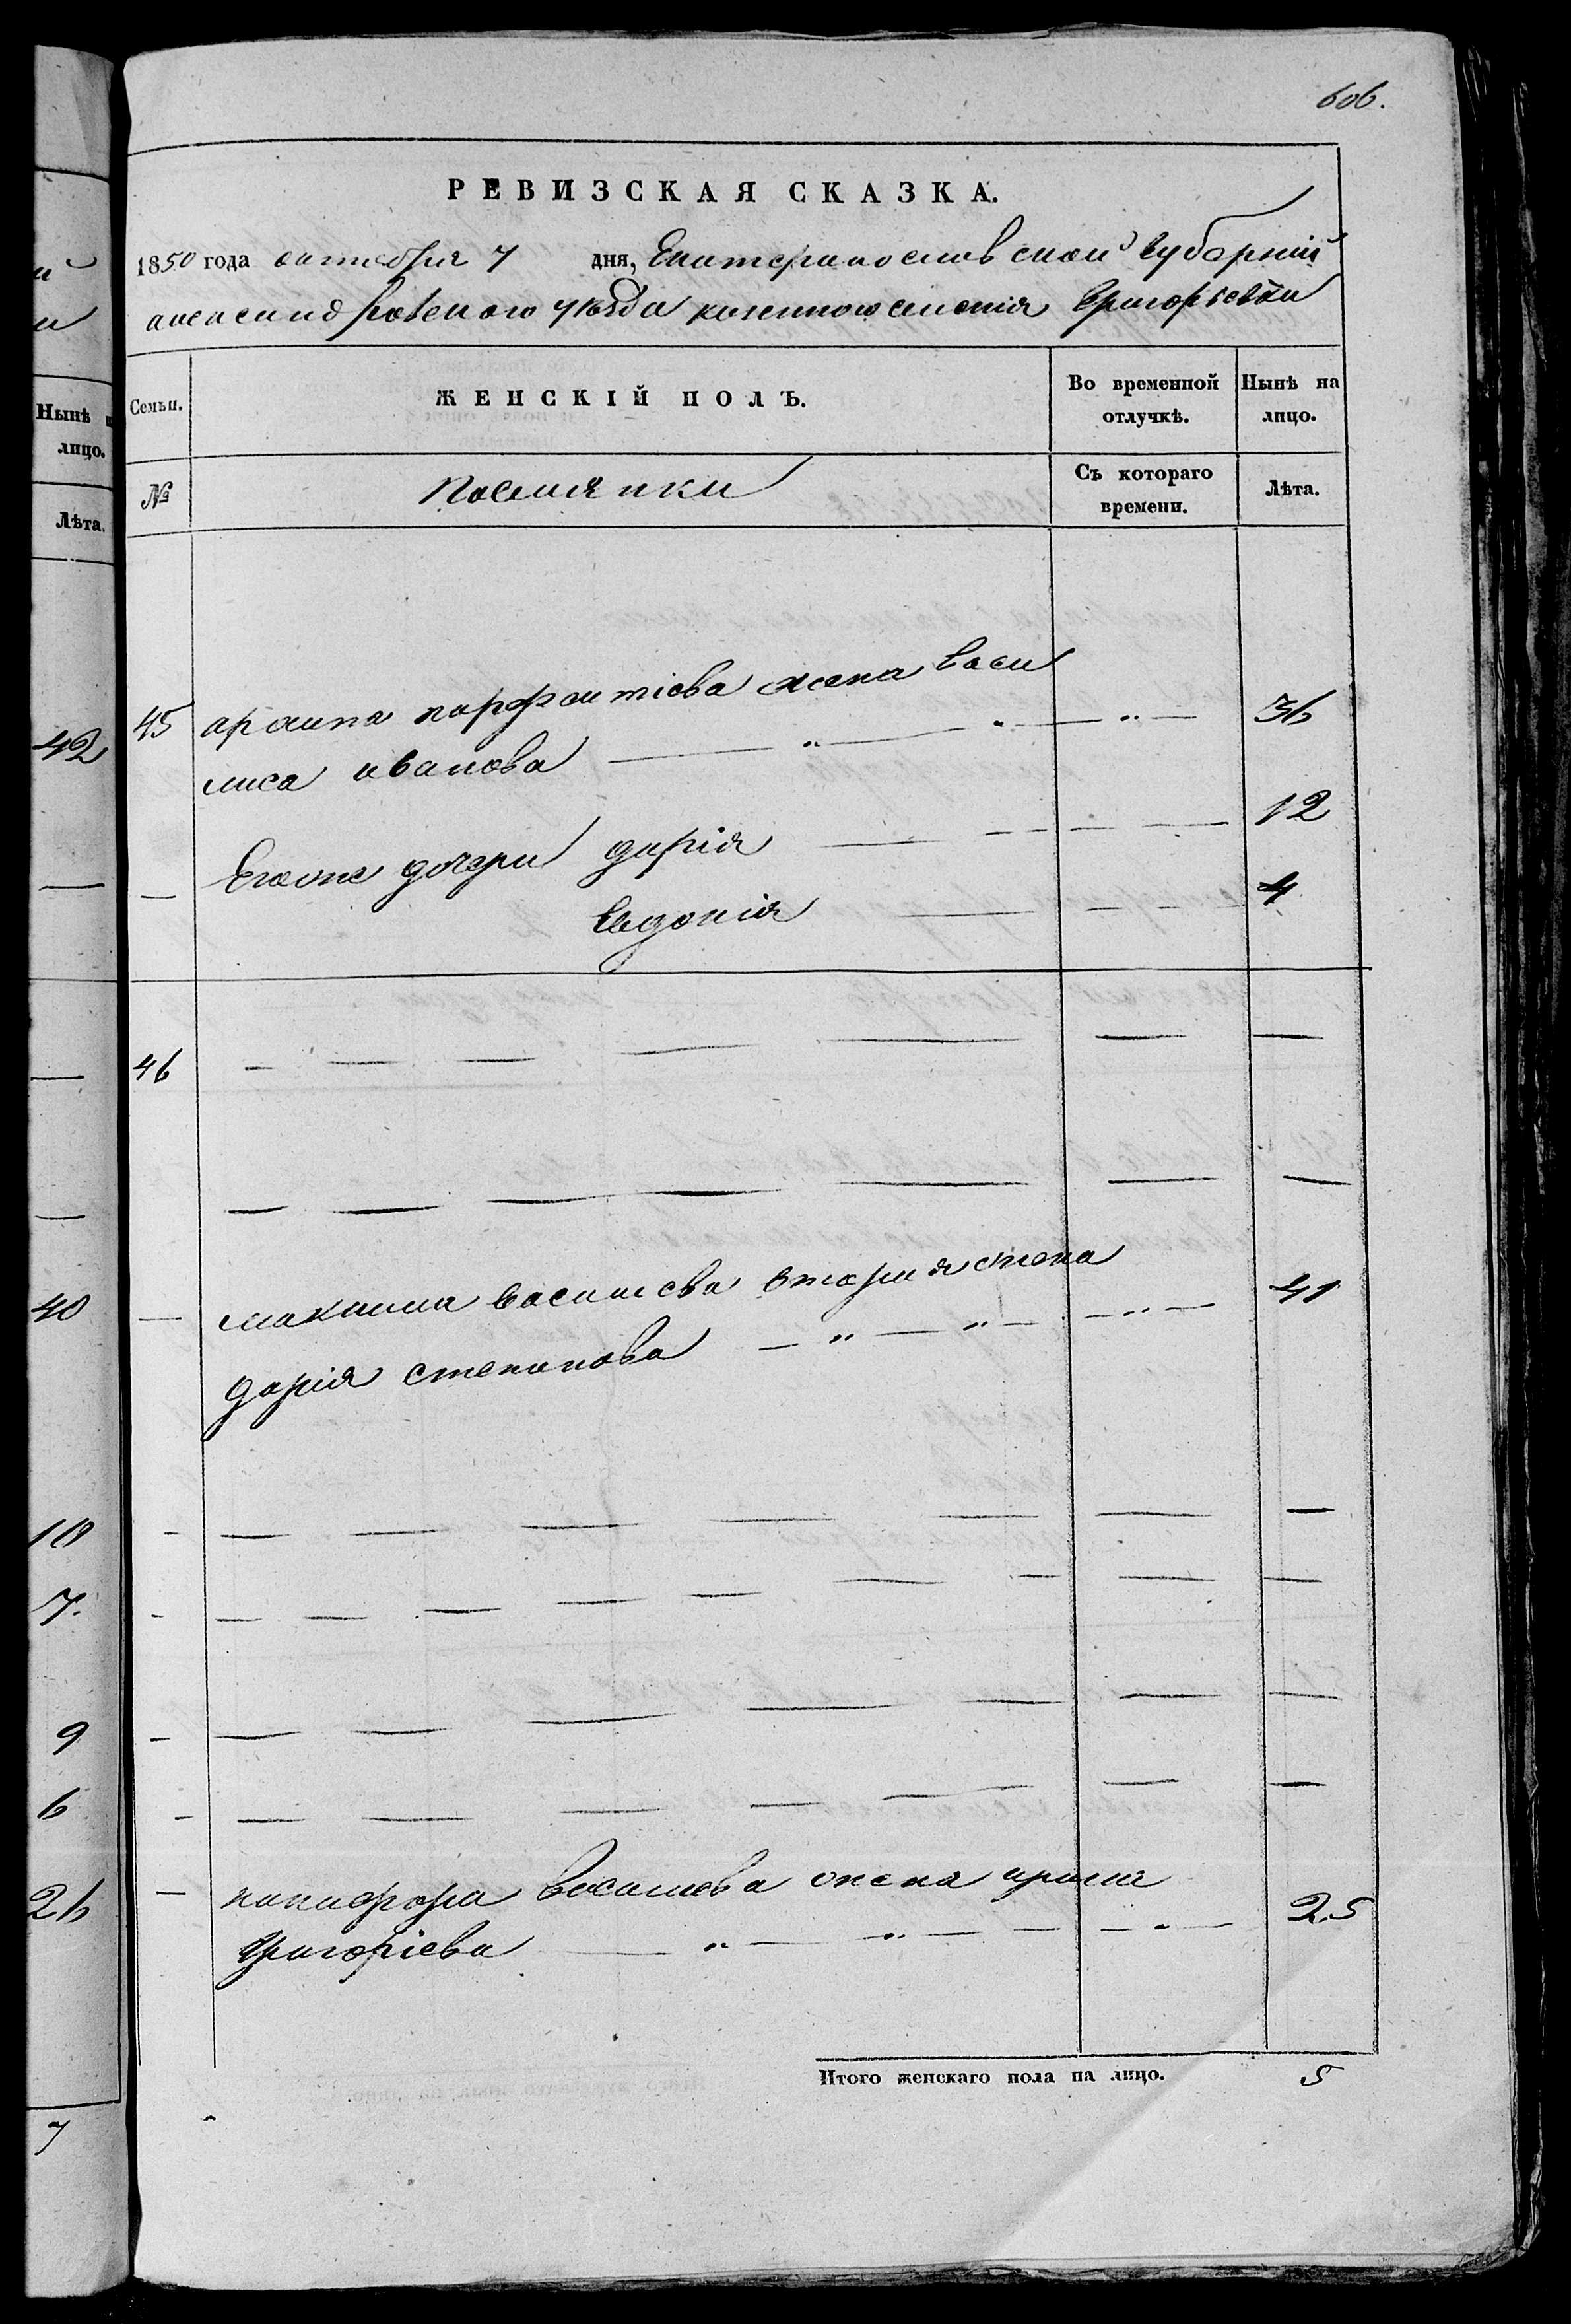 606.
РЕВИЗСКАЯ СКАЗКА.
1850 года октября 7 дня, Екатеринославской губернии
александровского уезда казенного селения Григорьевки
Семьи. ЖЕНСКІЙ ПОЛЪ. Во временной отлучкѣ. Нынѣ на лицо.
№ Поселянки Съ котораго времени. Лѣта.
45 жена Васи
лиса иванова — „ — „ — „ — 36
Его оне дочери дарія — — — — 12
— Евдокия — — — — 4
46 — — — — — — —
— — — — — — —
— максима васильева вторая жена
дарія степанова — „ — „ — „ — 41
- — — — — — — —
- — — — — — — — —
- — — — — — —
- — — — — — — —
— никифора васильева жена
Григоріева — „ — „ — — „ — 25
Итого женскаго пола на лицо. 5
й
и
Нынѣ н
лицо.
Лѣта.
42
—
—
—
40
10
7.
9
6
26
7